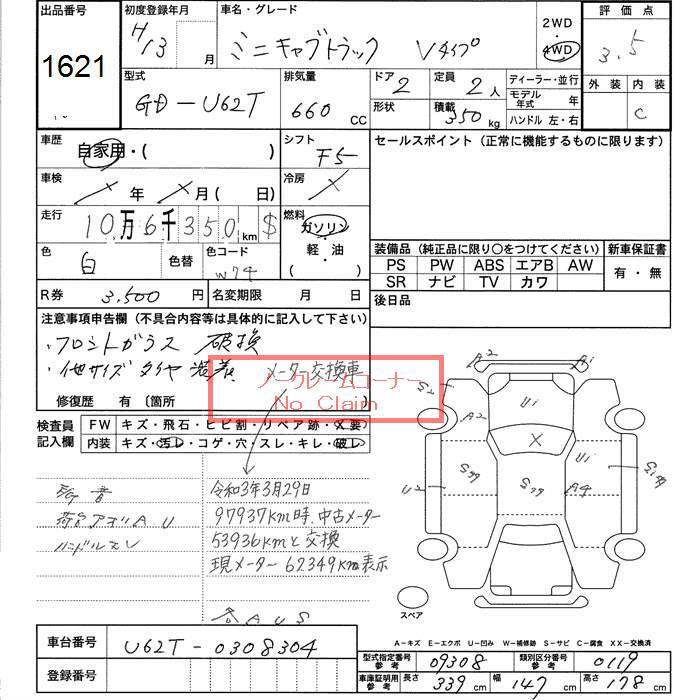 出品番号 初度登録年月 車名・グレード 2WD 評価点
1621 H13 月 ミニキャブトラック Vタイプ 4WD 3.5
型式 排気量 ドア 2 定員 2 人 ディーラー・並行 外装 内装
GD-U62T 660 CC 形状 積載 350 kg モデル年式 年 C
ハンドル 左・右
車歴 自家用・( ) シフト F5 セールスポイント(正常に機能するものに限ります)
車検 年 月( 日) 冷房
走行 10万6千350km $ 燃料 ガソリン
軽・油
( )
色 白 色替 色コード W74 装備品(純正品に限り○をつけてください) 新車保証書
PS PW ABS エアB AW 有・無
SR ナビ TV カワ
R券 3,500 円 名変期限 月 日 後日品
注意事項申告欄(不具合内容等は具体的に記入して下さい)
・フロントガラス 破換
・他サイズタイヤ 装着 メーター交換車
ノークレームコーナー
No Claim
修復歴 有〔箇所
検査員記入欄 FW キズ・飛石・ヒビ割・リペア跡・X要
内装 キズ・汚レ・コゲ・穴・スレ・キレ・破レ
A2 A1
S2 A2 U1
X U1
U2 S66 S66 A4
令和3年3月29日
97937km時.中古メーター
ハンドルスレ 53936kmと交換
現メーター 62349km表示
AUS
スペア
A-キズ E-エクボ U-凹み W-補修跡 S-サビ C-腐食 XX-交換済
車台番号 U62T-0308304 型式指定番号参考 09308 類別区分番号参考 0119
登録番号 車庫証明用参考 長さ 339 cm 幅 147 cm 高さ 178 cm